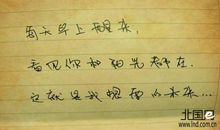 每天早上醒来，
看见你和阳光都在，
这就是我想要的未来…
北国网
www.lnd.com.cn